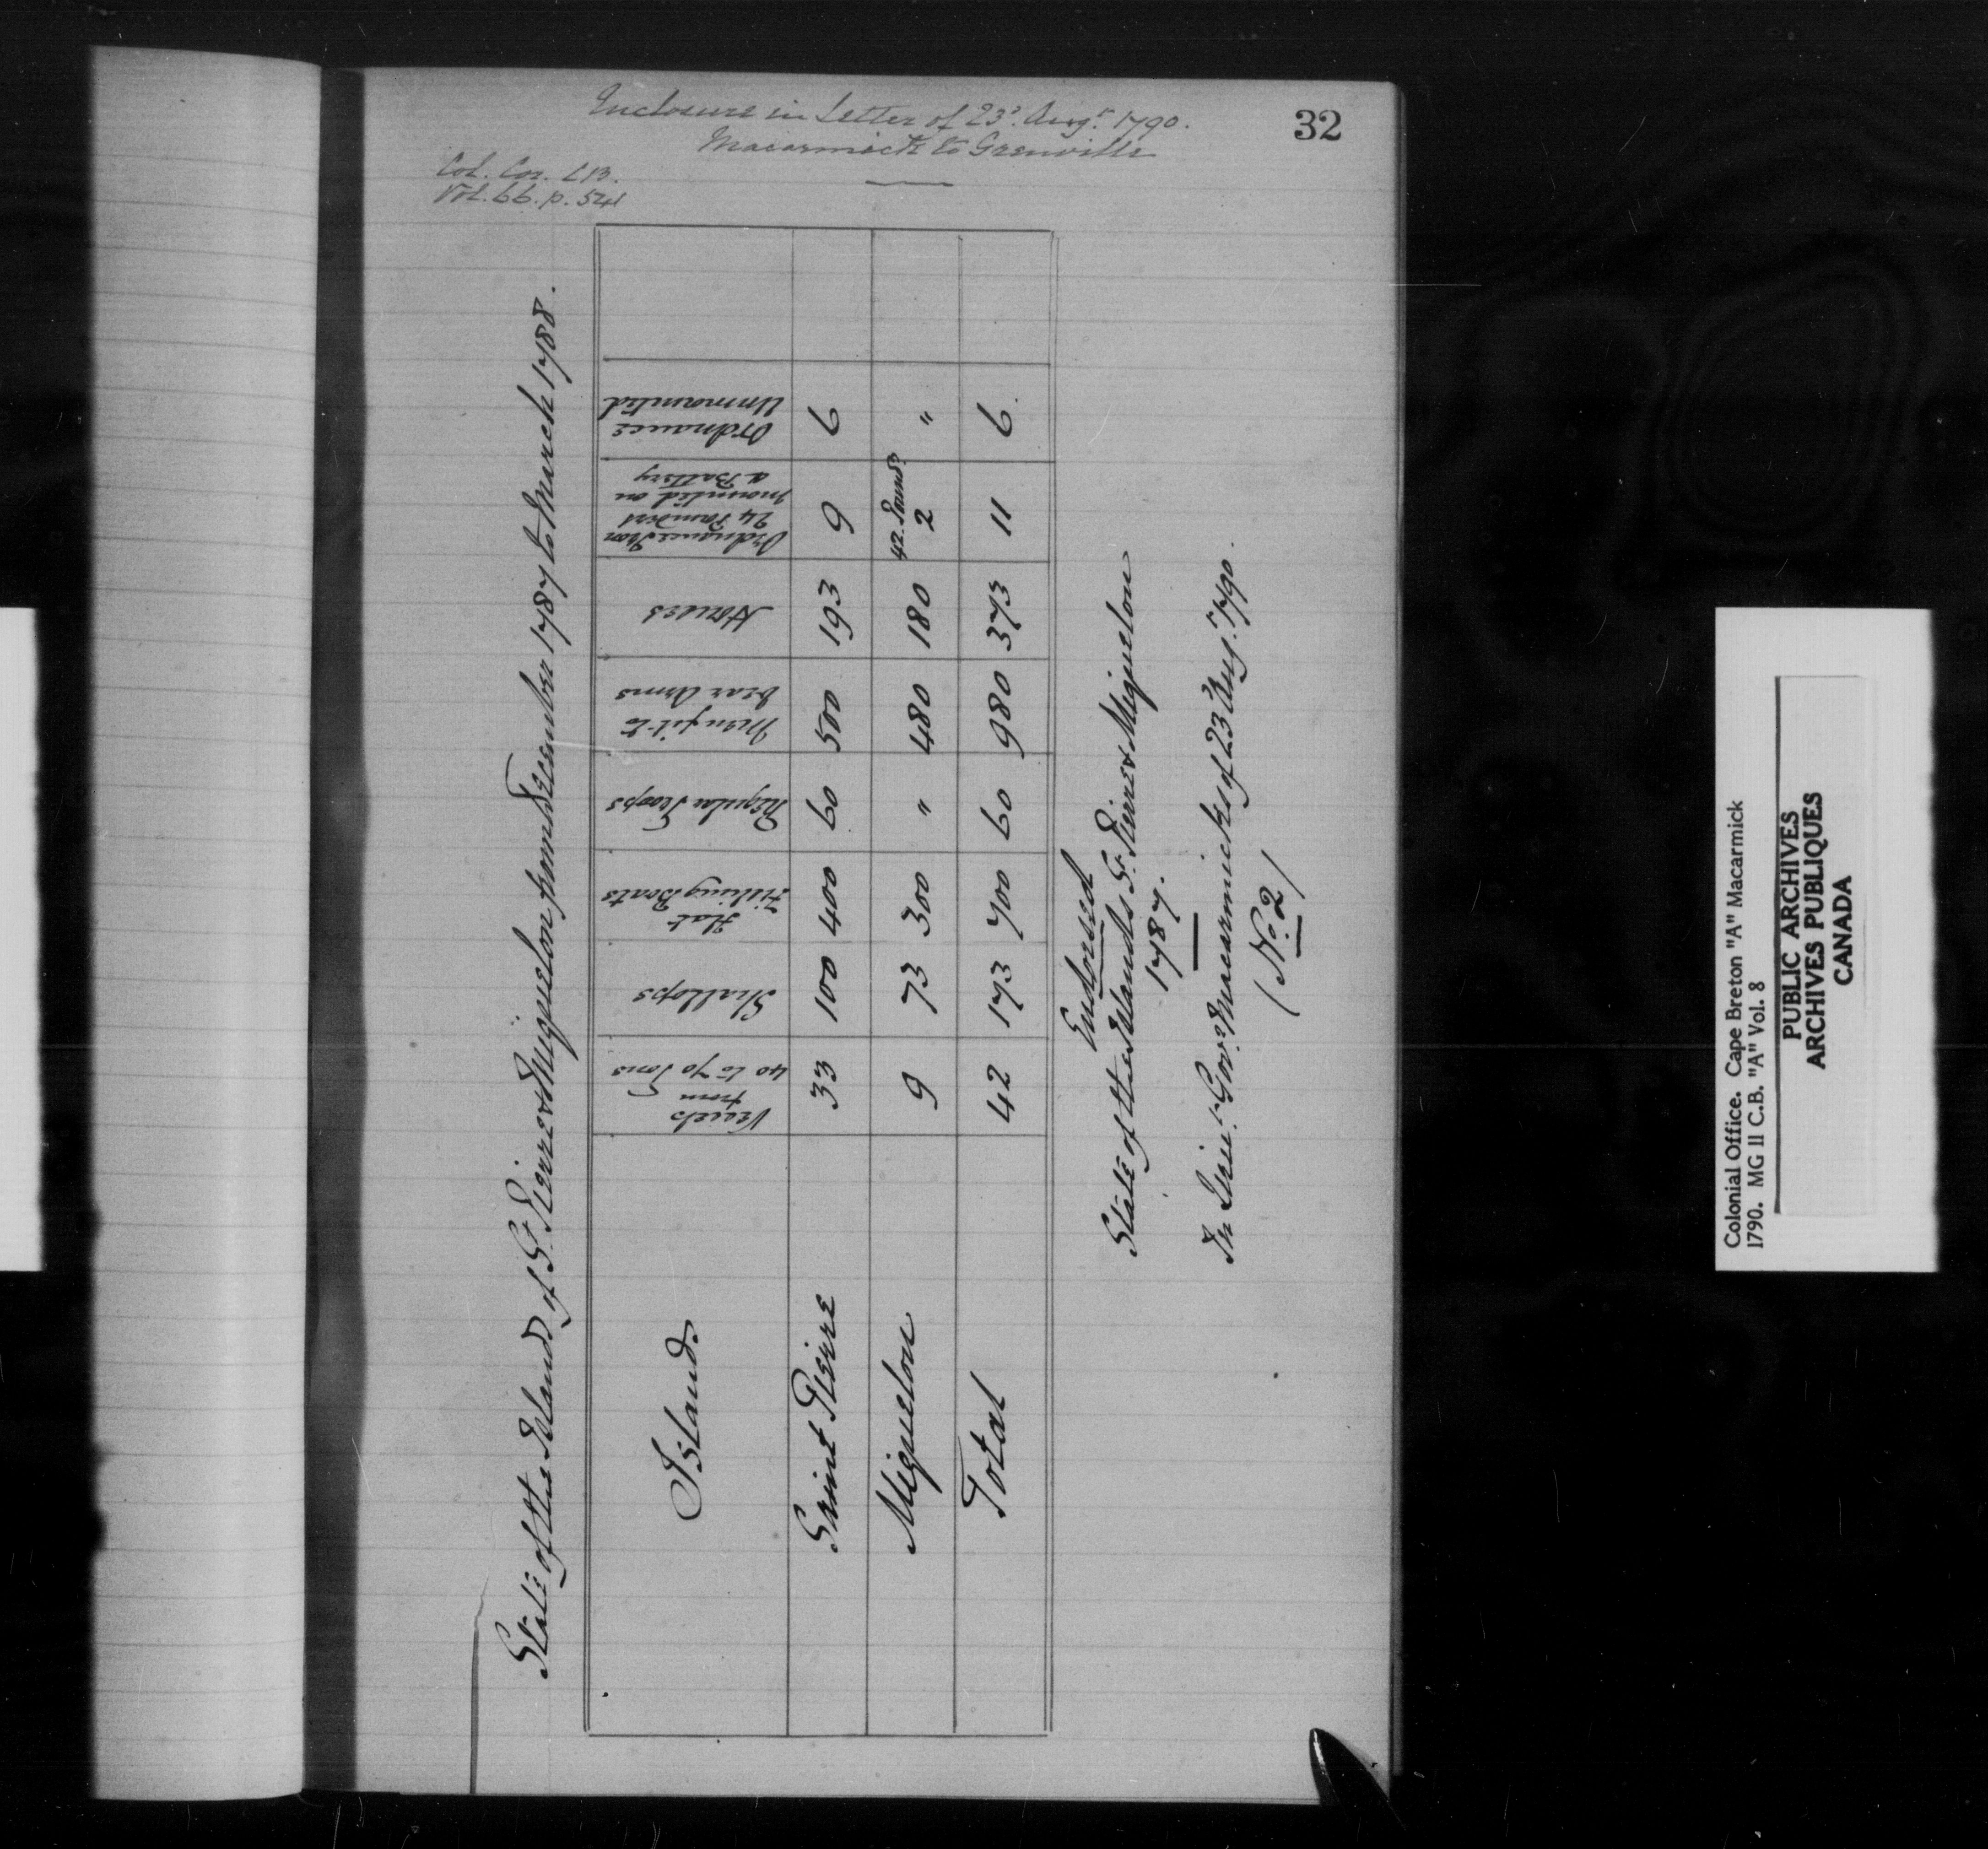 32
Enclosure in Letter of 23d. Augt. 1790.
Macarmick to Grenville
Col. Cor. C.B.
Vol. 66. p. 54
State of the Islands of St. Pierre & Miquelon from December 1787 to March 1788.
Island Vessels from 40 to 70 Tons Shallops Flat Fishing Boats Regular Troops Men fit to bear Arms Houses Ordnance Iron 24 Pounders mounted on a Battery Ordnance Unmounted
Saint Pierre 33 100 400 60 500 193 9 6
Miquelon 9 73 300 " 480 180 42. Pounds. 2 "
Total 42 173 700 60 980 373 11 6.
Endorsed
State of the Islands St. Pierre & Miquelon
1787.
In Lieut. Govr. Macarmick's of 23d Augt. 1790.
(No. 2)
Colonial Office. Cape Breton "A" Macarmick
1790. MG 11 C.B. "A" Vol. 8
PUBLIC ARCHIVES
ARCHIVES PUBLIQUES
CANADA